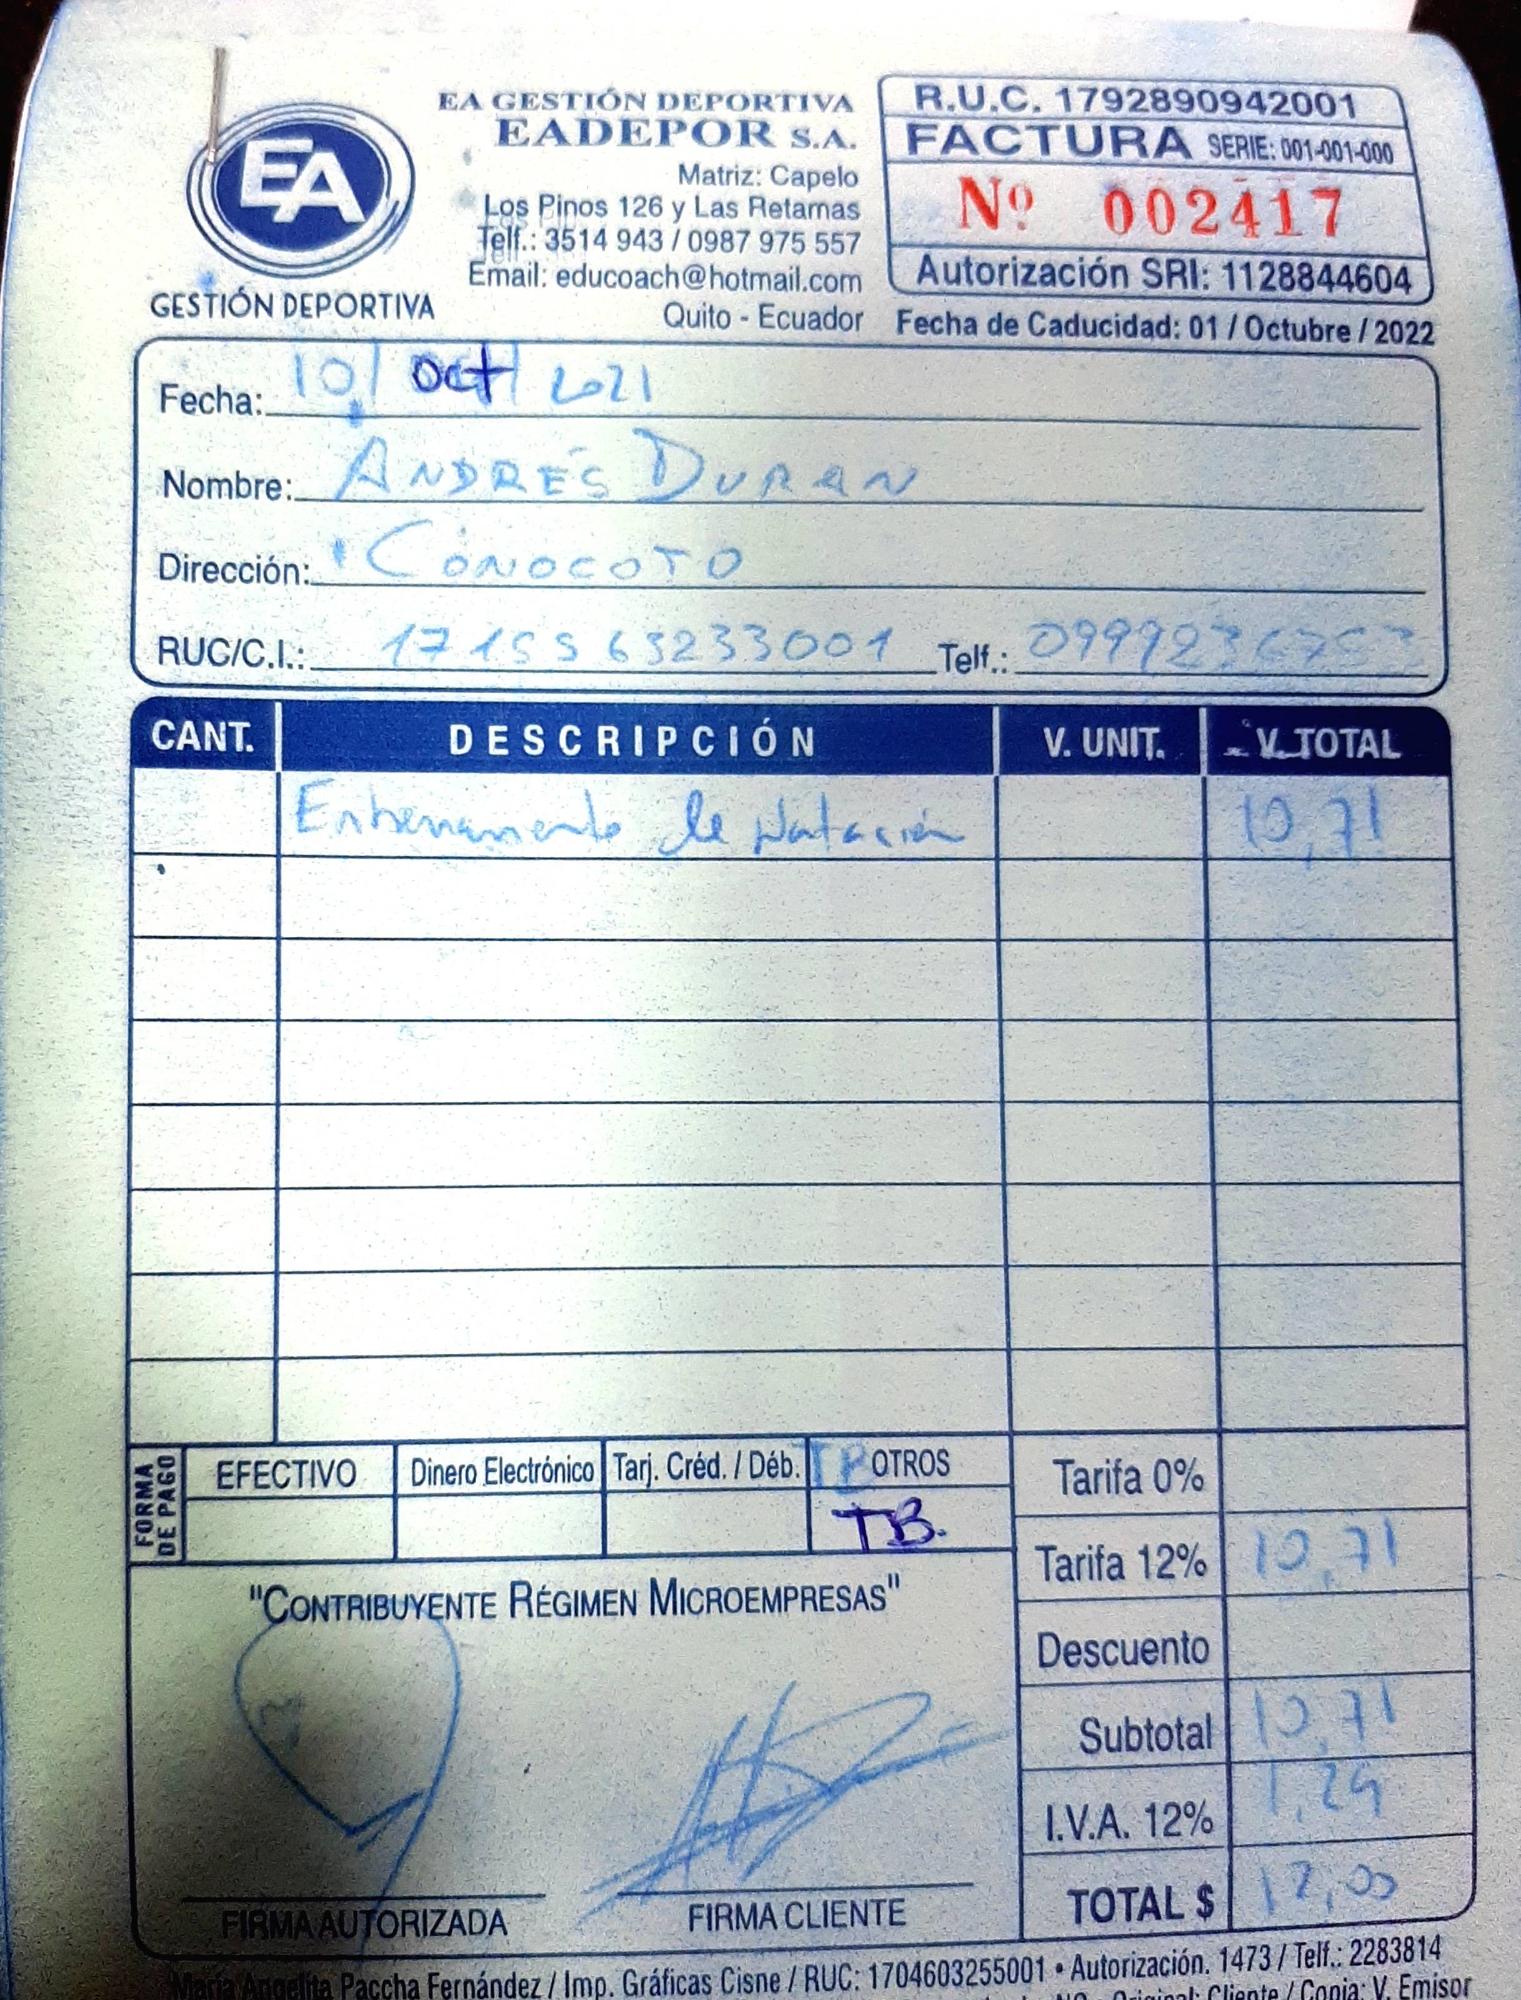 EA GESTIÓN DEPORTIVA
EADEPOR S.A.
Matriz: Capelo
Los Pinos 126 y Las Retamas
Telf.: 3514 943 / 0987 975 557
Email: educoach@hotmail.com
Quito - Ecuador
EA
GESTIÓN DEPORTIVA
R.U.C. 1792890942001
FACTURA SERIE: 001-001-000
Nº 002417
Autorización SRI: 1128844604
Fecha de Caducidad: 01 / Octubre / 2022
Fecha: 10/ Oct/ 2021
Nombre: ANDRÉS DURAN
Dirección: CONOCOTO
RUC/C.I.: 1715563233001 Telf.:
CANT. DESCRIPCIÓN V. UNIT. V. TOTAL
Entrenamiento de Natación 10,71
FORMA DE PAGO
EFECTIVO Dinero Electrónico Tarj. Créd. / Déb. TB OTROS
TB.
Tarifa 0%
Tarifa 12% 10,71
Descuento
Subtotal 10,71
I.V.A. 12% 1,29
TOTAL $ 12,00
"CONTRIBUYENTE RÉGIMEN MICROEMPRESAS"
FIRMA AUTORIZADA FIRMA CLIENTE
María Angelita Paccha Fernández / Imp. Gráficas Cisne / RUC: 1704603255001 • Autorización. 1473 / Telf.: 2283814
Original: Cliente / Copia: V. Emisor